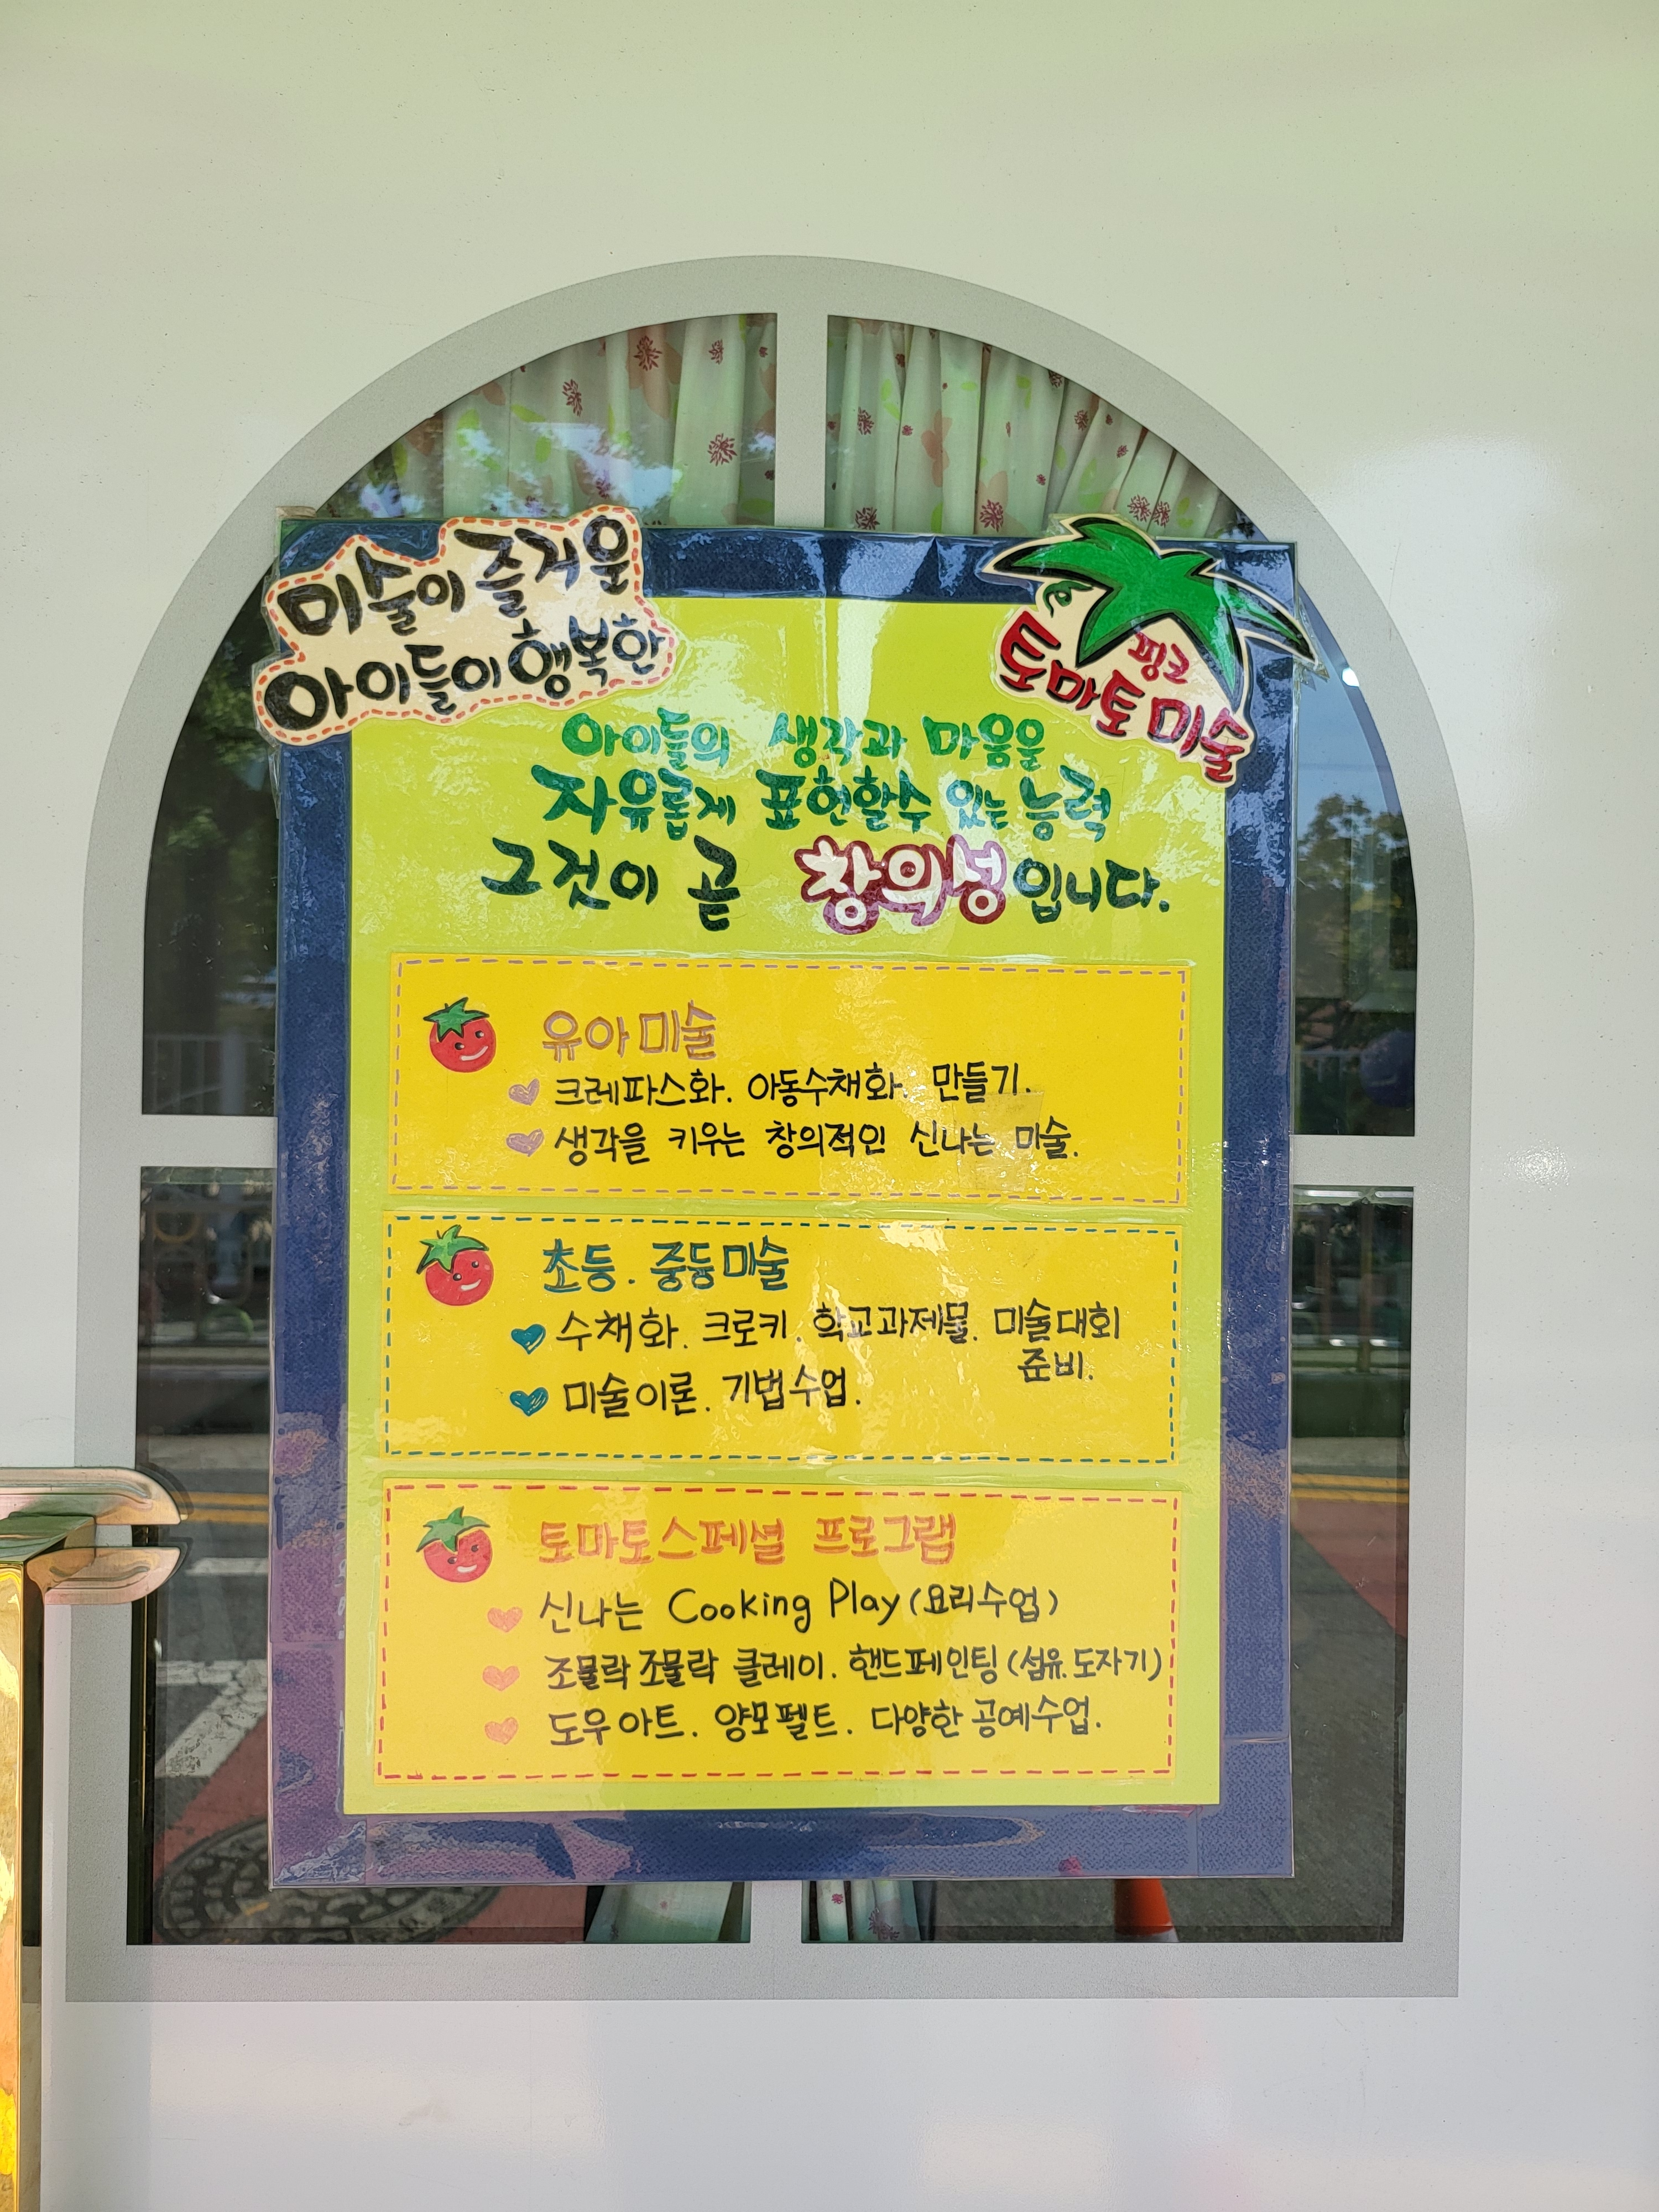 미술이 즐거운
아이들이 행복한
핑크
토마토 미술
아이들의 생각과 마음을
자유롭게 표현할수 있는 능력
그것이 곧 창의성입니다.
유아 미술
크레파스화. 아동수채화. 만들기.
생각을 키우는 창의적인 신나는 미술.
초등. 중등미술
수채화. 크로키. 학교과제물. 미술대회
준비.
미술이론. 기법수업.
토마토스페셜 프로그램
신나는 Cooking Play (요리수업)
조물락조물락 클레이. 핸드페인팅 (섬유.도자기)
도우아트. 양모펠트. 다양한 공예수업.